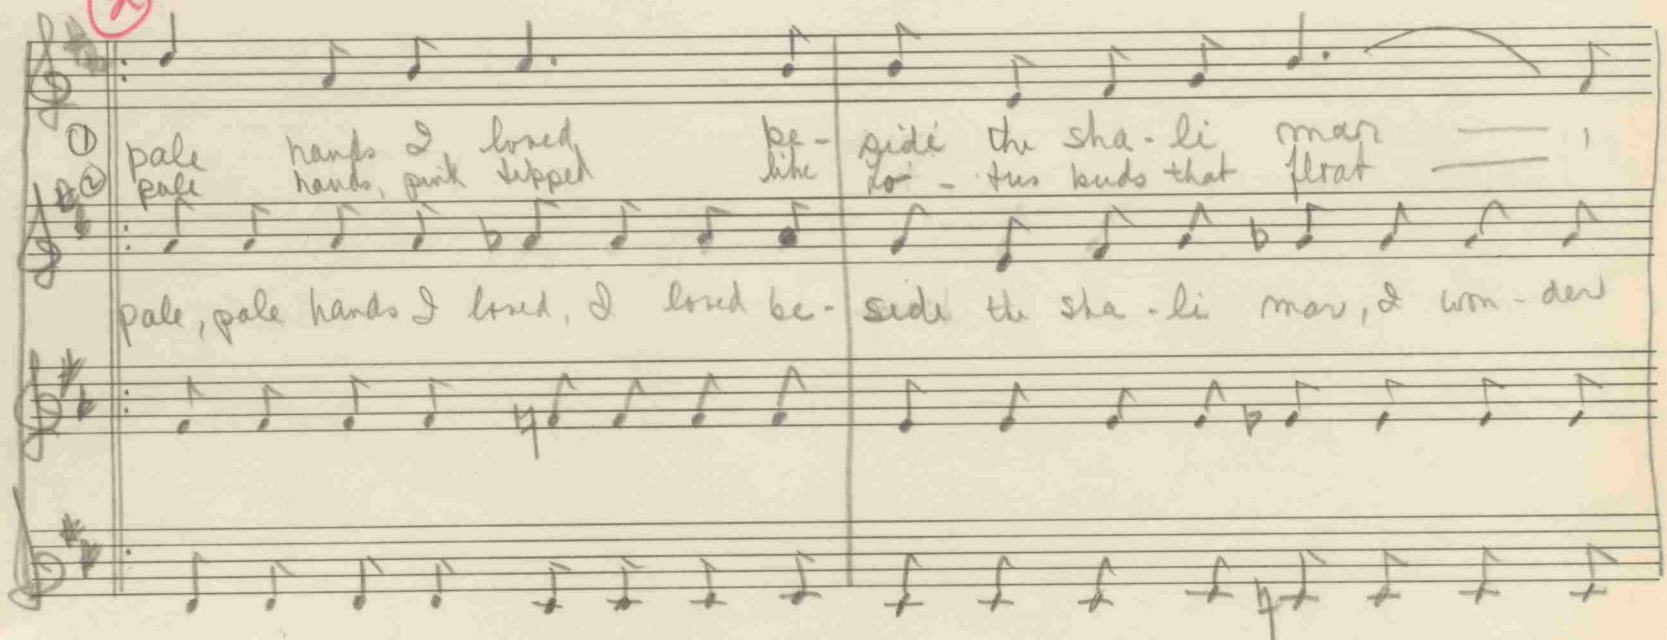 ① pale hands I loved be- side the sha - li mar ——— ,
② pale hands, pink tipped like lo - tus buds that float ———
pale, pale hands I loved, I loved be- side the sha - li mar, I won - der